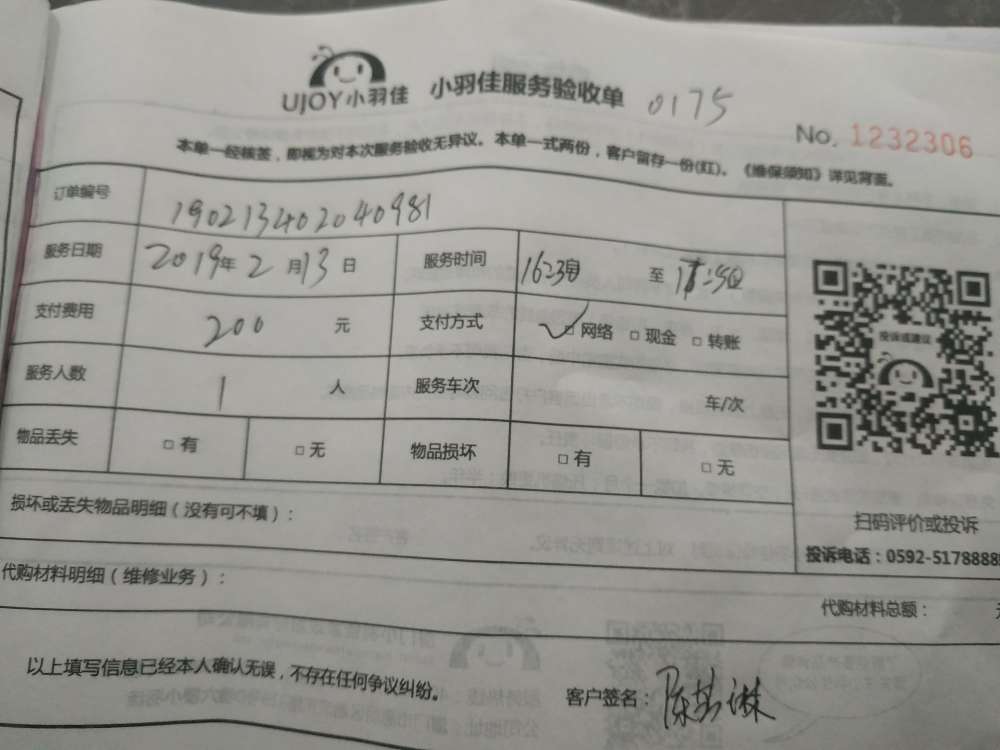 UJOY小羽佳 小羽佳服务验收单 0175
No. 1232306
本单一经核签，即视为对本次服务验收无异议。本单一式两份，客户留存一份(红)。《维保须知》详见背面。
订单编号 190213402040981
服务日期 2019年2月13日 服务时间 至
支付费用 200 元 支付方式 ✓□网络 □现金 □转账
服务人数 1 人 服务车次 车/次
物品丢失 □有 □无 物品损坏 □有 □无
投诉或建议
扫码评价或投诉
投诉电话：0592-5178888
损坏或丢失物品明细（没有可不填）：
代购材料明细（维修业务）：
代购材料总额：
以上填写信息已经本人确认无误，不存在任何争议纠纷。
客户签名：